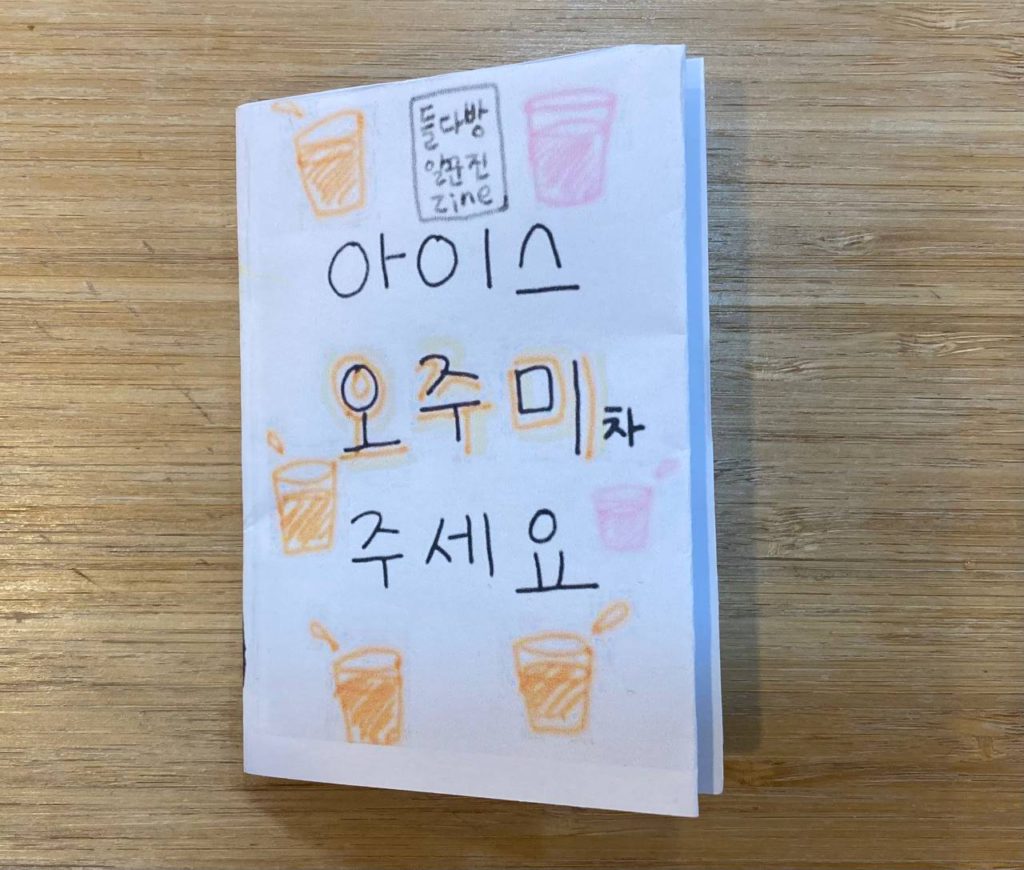 들다방
일꾼진
zine
아이스
오주미차
주세요